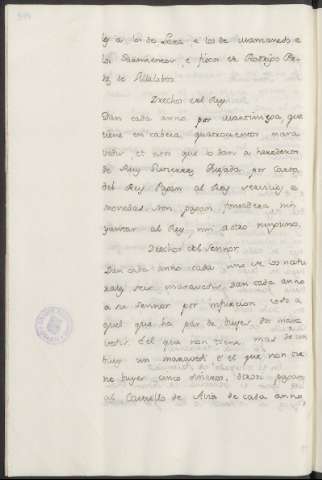 e a los de Lara e los de Manzanedo e
los Sarmientos, e finca en Rodrigo Pe-
rez de Villalobos
Derechos del Rey
Dan cada anno por Martiniega, que
tiene en cabeza quatrocientos mara
vedis et esto que lo dan a herederos
de Ruy Gutierrez Quijada por Carta
del Rey. Pagan al Rey servicios e
monedas. Non pagan fonsadera nin
yantar al Rey, nin a otro ninguno.
Derechos del Sennor
Dan cada anno cada uno de los natu
rales seis maravedis. Dan cada anno
a su Sennor por infurcion todo a
quel que ha par de bueyes dos mara
vedis. E el que non tiene mas de un
buey un maravedi e el que non tie
ne bueyes cinco dineros, otrosi pagan
al Castiello de Avia de cada anno,